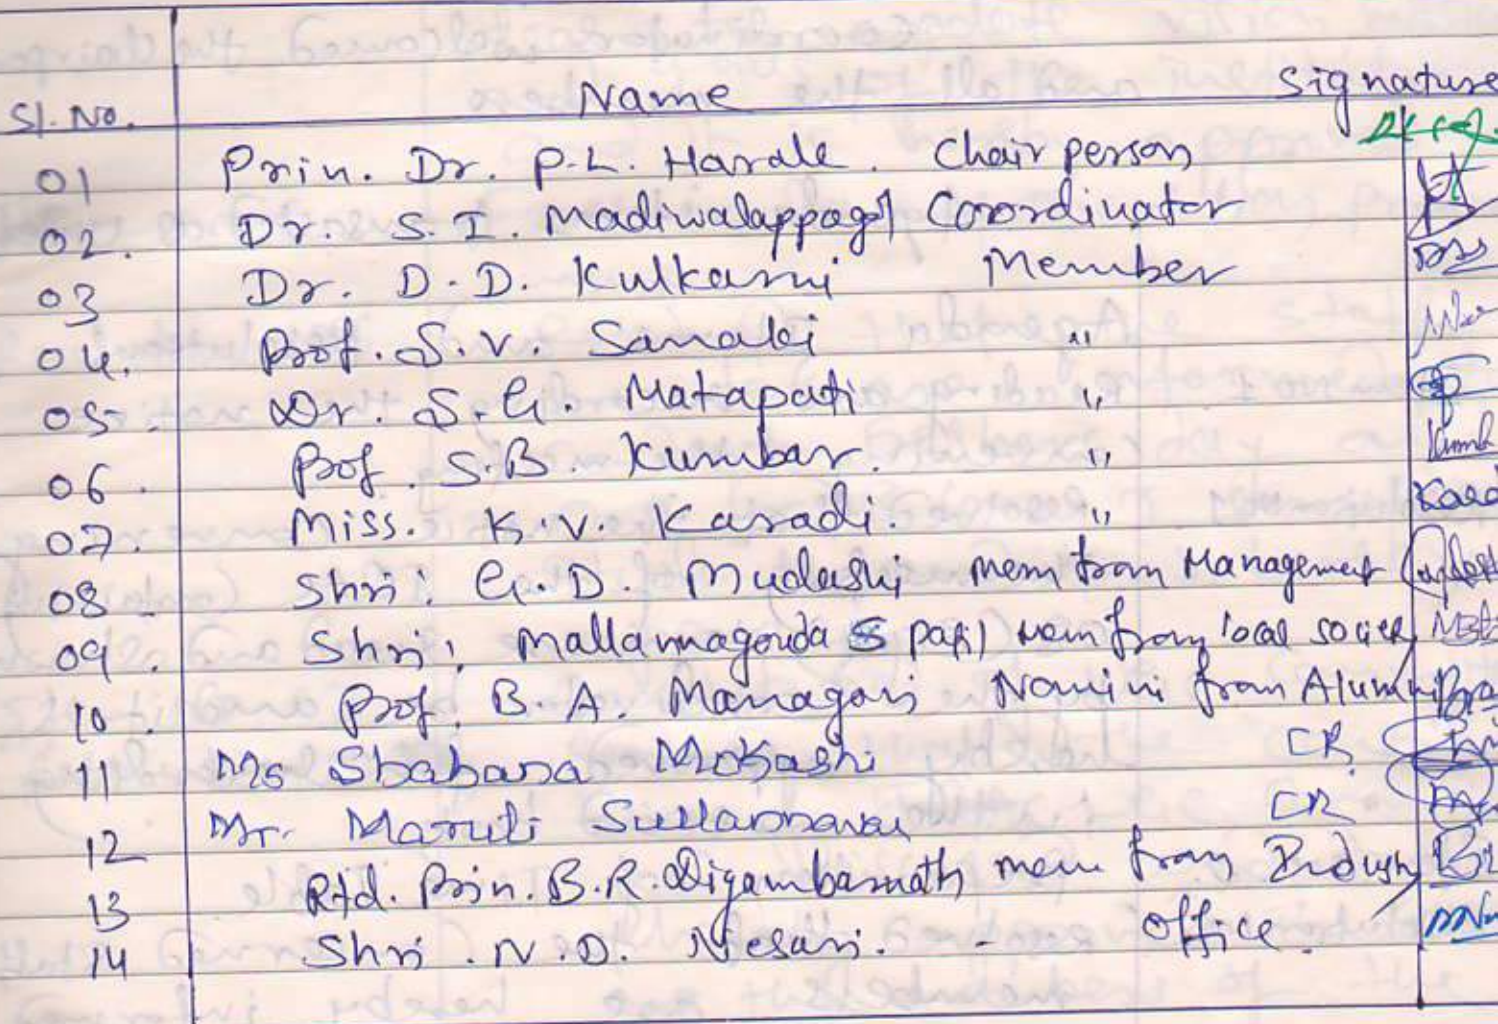 Sl. No. Name Signature
01 Prin. Dr. P.L. Harale. Chair person
02. Dr. S. I. Madiwalappagol Coordinator
03 Dr. D. D. Kulkarni Member
04. Prof. S. V. Sanaki "
05. Dr S. G. Matapati "
06. Prof. S.B. Kumbar. "
07. Miss. K. V. Karadi. "
08 Shri: G. D. Mudashi mem from Management
09. Shri: Mallannagouda S patil mem from local society
10. Prof. B. A. Managori Nomini from Alumni
11 Ms Shabana Mokashi CR
12 Mr. Maruti CR
13 Rtd. Prin. B. R. Digambarnath mem from
14 Shri. N. D. Nesari. - office.